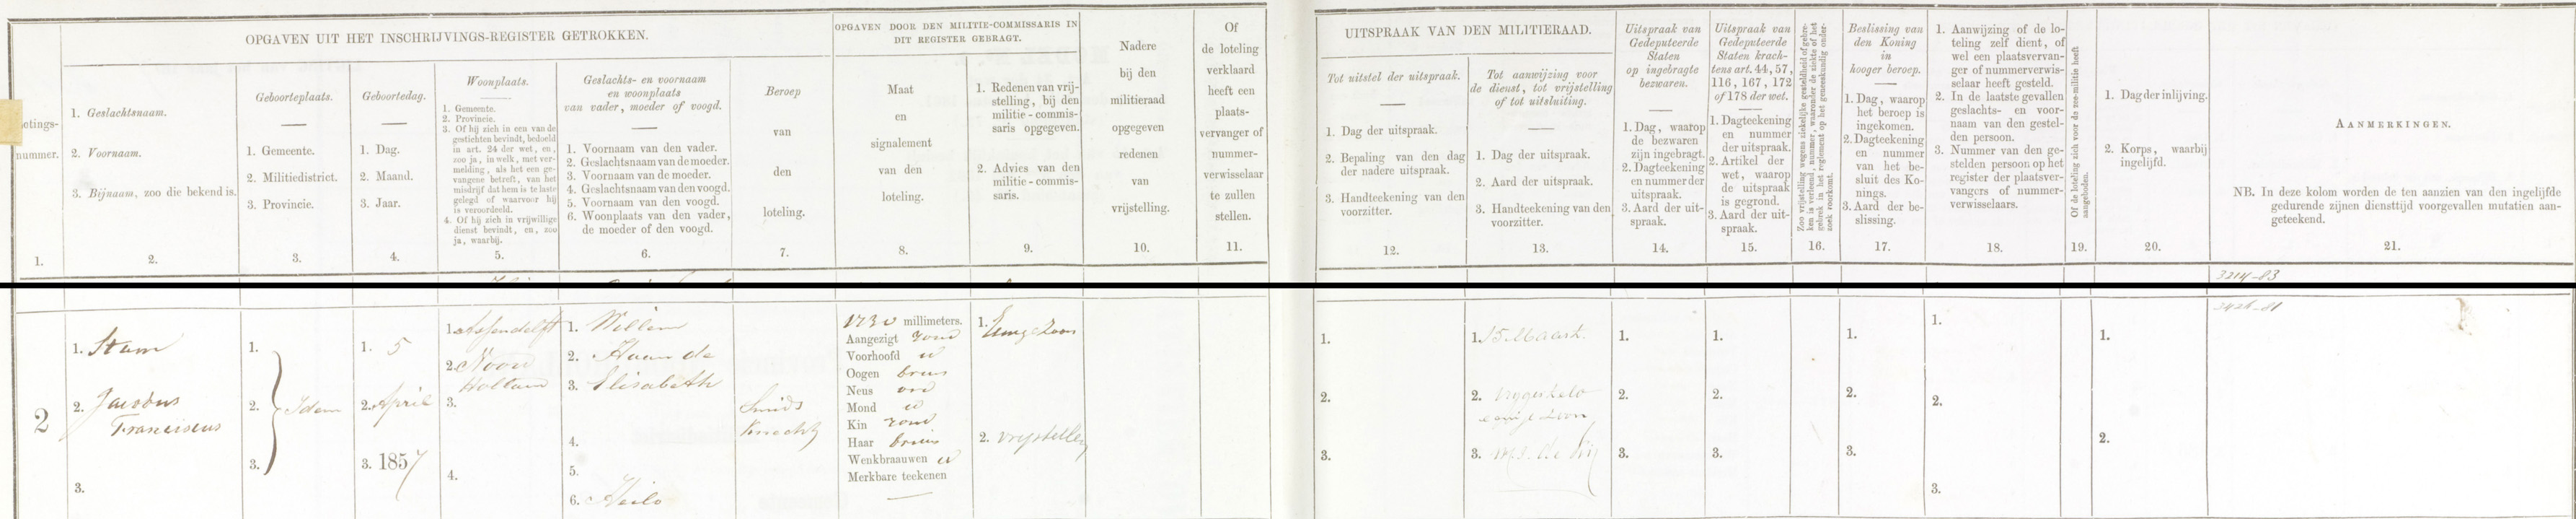 OPGAVEN UIT HET INSCHRIJVINGS-REGISTER GETROKKEN.
OPGAVEN DOOR DEN MILITIE-COMMISSARIS IN
DIT REGISTER GEBRAGT.
otings-
nummer.
1.
1. Geslachtsnaam.
2. Voornaam.
3. Bijnaam, zoo die bekend is.
2.
Geboorteplaats.
1. Gemeente.
2. Militiedistrict.
3. Provincie.
3.
Geboortedag.
1. Dag.
2. Maand.
3. Jaar.
4.
Woonplaats.
1. Gemeente.
2. Provincie.
3. Of hij zich in een van de
gestichten bevindt, bedoeld
in art. 24 der wet, en,
zoo ja, in welk, met ver-
melding, als het een ge-
vangene betreft, van het
misdrijf dat hem is te laste
gelegd of waarvoor hij
is veroordeeld.
4. Of hij zich in vrijwillige
dienst bevindt, en, zoo
ja, waarbij.
5.
Geslachts- en voornaam
en woonplaats
van vader, moeder of voogd.
1. Voornaam van den vader.
2. Geslachtsnaam van de moeder.
3. Voornaam van de moeder.
4. Geslachtsnaam van den voogd.
5. Voornaam van den voogd.
6. Woonplaats van den vader,
de moeder of den voogd.
6.
Beroep
van
den
loteling.
7.
Maat
en
signalement
van den
loteling.
8.
1. Redenen van vrij-
stelling, bij den
militie-commis-
saris opgegeven.
2. Advies van den
militie-commis-
saris.
9.
Nadere
bij den
militieraad
opgegeven
redenen
van
vrijstelling.
10.
Of
de loteling
verklaard
heeft een
plaats-
vervanger of
nummer-
verwisselaar
te zullen
stellen.
11.
UITSPRAAK VAN DEN MILITIERAAD.
Tot uitstel der uitspraak.
1. Dag der uitspraak.
2. Bepaling van den dag
der nadere uitspraak.
3. Handteekening van den
voorzitter.
12.
Tot aanwijzing voor
de dienst, tot vrijstelling
of tot uitsluiting.
1. Dag der uitspraak.
2. Aard der uitspraak.
3. Handteekening van den
voorzitter.
13.
Uitspraak van
Gedeputeerde
Staten
op ingebragte
bezwaren.
1. Dag, waarop
de bezwaren
zijn ingebragt.
2. Dagteekening
en nummer der
uitspraak.
3. Aard der uit-
spraak.
14.
Uitspraak van
Gedeputeerde
Staten krach-
tens art. 44, 57,
116, 167, 172
of 178 der wet.
1. Dagteekening
en nummer
der uitspraak.
2. Artikel der
wet, waarop
de uitspraak
is gegrond.
3. Aard der uit-
spraak.
15.
Zoo vrijstelling wegens ziekelijke gesteldheid of gebre-
ken is verleend, nummer, waaronder de ziekte of het
gebrek in het reglement op het geneeskundig onder-
zoek voorkomt.
16.
Beslissing van
den Koning
in
hooger beroep.
1. Dag, waarop
het beroep is
ingekomen.
2. Dagteekening
en nummer
van het be-
sluit des Ko-
nings.
3. Aard der be-
slissing.
17.
1. Aanwijzing of de lo-
teling zelf dient, of
wel een plaatsvervan-
ger of nummerverwis-
selaar heeft gesteld.
2. In de laatste gevallen
geslachts- en voor-
naam van den gestel-
den persoon.
3. Nummer van den ge-
stelden persoon op het
register der plaatsver-
vangers of nummer-
verwisselaars.
18.
Of de loteling zich voor de zee-militie heeft
aangeboden.
19.
1. Dag der inlijving.
2. Korps, waarbij
ingelijfd.
20.
AANMERKINGEN.
NB. In deze kolom worden de ten aanzien van den ingelijfde
gedurende zijnen diensttijd voorgevallen mutatiën aan-
geteekend.
21.
3214-83
2
1. Stam
2. Jacobus
Franciscus
3.
1.
2. Idem
3.
1. 5
2. April
3. 1857
1. Assendelft
2. Noord
Holland
3.
4.
1. Willem
2. Haan de
3. Elisabeth
4.
5.
6. Heilo
Smids
Knecht
1730 millimeters.
Aangezigt rond
Voorhoofd id
Oogen bruin
Neus ord
Mond id
Kin rond
Haar bruin
Wenkbraauwen id
Merkbare teekenen
1. Eenige Zoon
2. vrijstelling
1.
2.
3.
1. 15 Maart.
2. Vrijgesteld
eenige zoon
3.
1.
2.
3.
1.
2.
3.
1.
2.
3.
1.
2.
3.
1.
2.